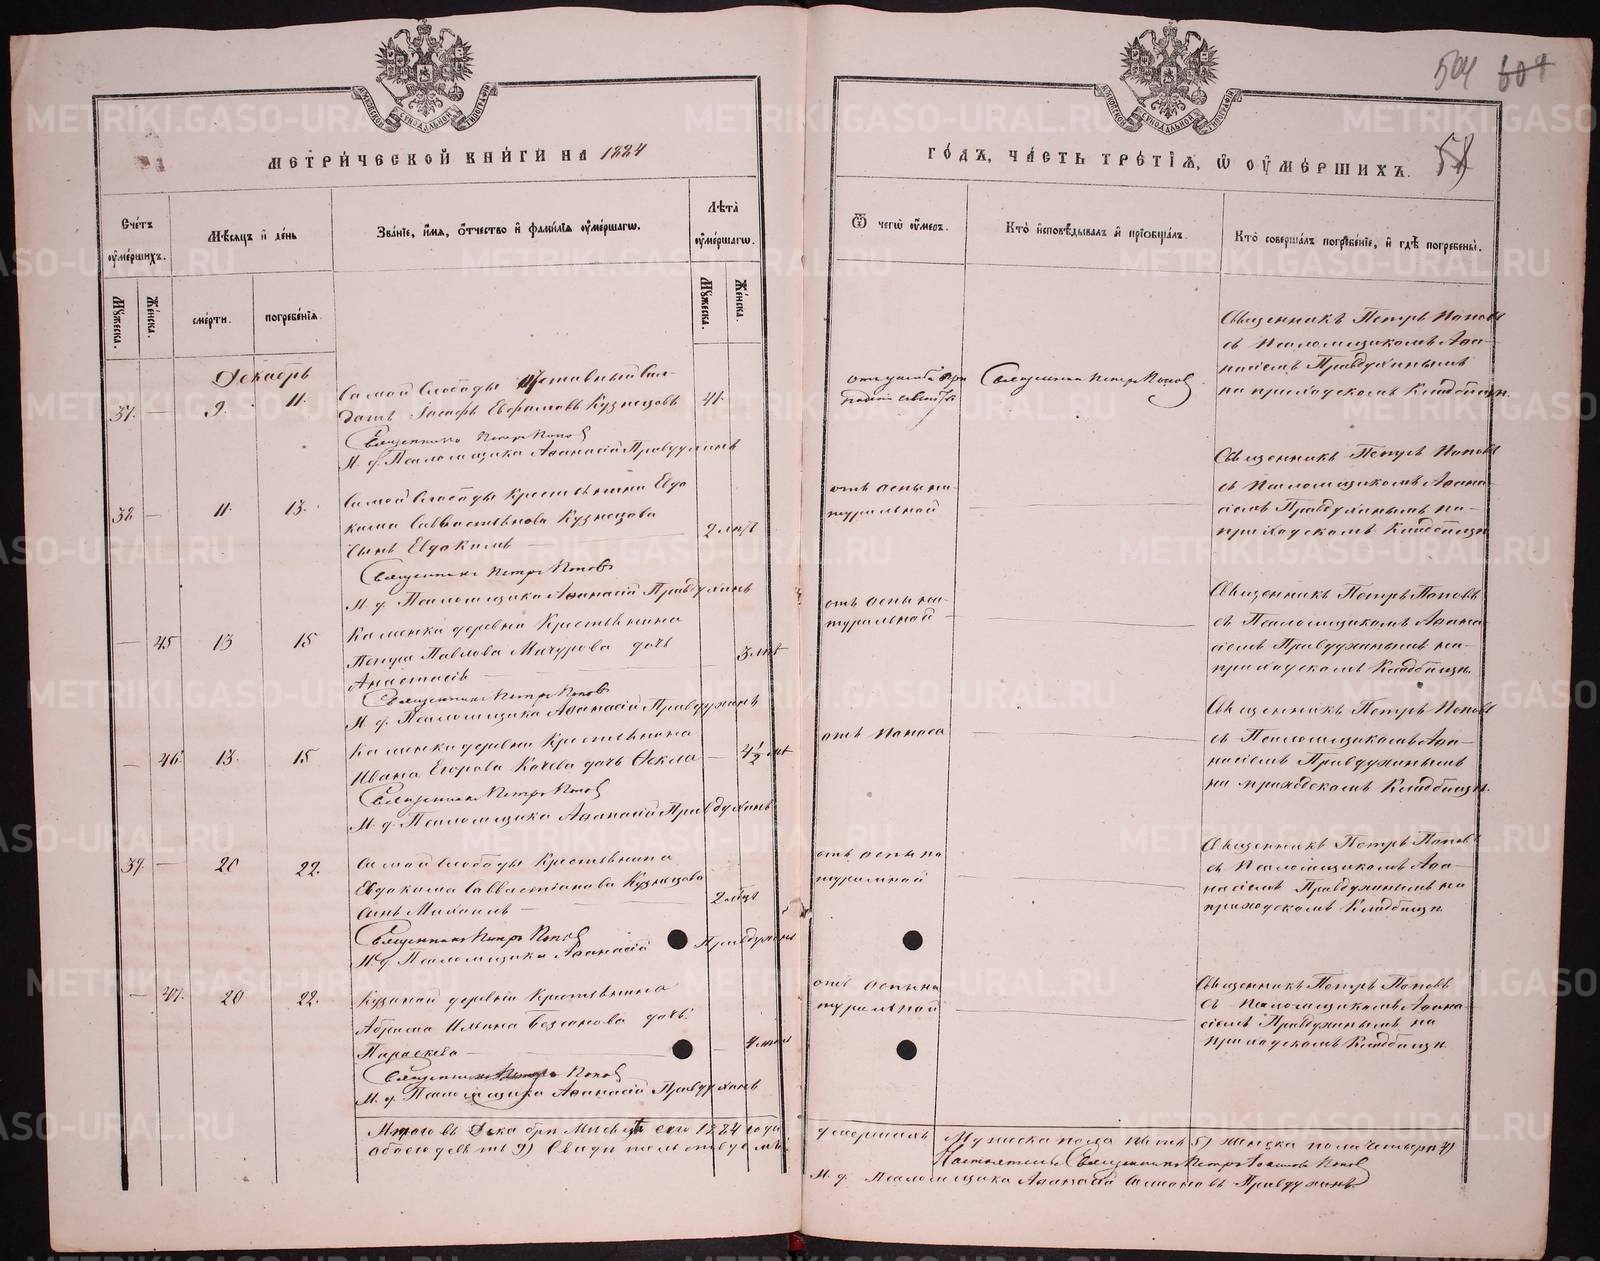 МЕТРИЧЕСКОЙ КНИГИ НА 1884
ГОДЪ, ЧАСТЬ ТРЕТІЯ, Ѡ ОУМЕРШИХЪ.
504
Счетъ оумершихъ.
Мѣсяцъ и день
Званіе, имя, отчество и фамилія оумершагѡ.
Лѣта оумершагѡ.
Ѿ чегѡ оумеръ.
Кто исповѣдывалъ и пріобщалъ.
Кто совершалъ погребеніе, и гдѣ погребены.
Мужеска.
Женска.
смерти.
погребенія
Мужеска.
Женска.
Декабрь
37. — 9. 11.
Самой Слободы
датъ Евфимовъ Кузнецовъ 41.
Священникъ Петръ Поповъ
И. д. Псаломщика Афанасій Правдухинъ
Священникъ Петръ Поповъ
Священникъ Петръ Поповъ
съ Псаломщикомъ Афа-
насіемъ Правдухинымъ
на приходскомъ Кладбищѣ.
38 — 11. 13.
Самой Слободы Крестьянина Евдо
кима Савватьянова Кузнецова
сынъ Евдокимъ
отъ оспы на-
туральной
Священникъ Петръ Поповъ
съ Псаломщикомъ Афана-
сіемъ Правдухинымъ на
приходскомъ Кладбищѣ
Священникъ Петръ Поповъ
И. д. Псаломщика Афанасій Правдухинъ
— 45 13 15
Каменки деревни Крестьянина
Петра Павлова Мачурова дочь
Анастасія
3 лѣт
отъ оспы на-
туральной
Священникъ Петръ Поповъ
съ Псаломщикомъ Афана-
сіемъ Правдухинымъ на-
приходскомъ Кладбищѣ.
Священникъ Петръ Поповъ
И. д. Псаломщика Афанасій Правдухинъ
— 46. 13. 15
Каменки деревни Крестьянина
Ивана Егорова Качева дочь Ѳекла — 4½ лѣт
отъ поноса
Священникъ Петръ Поповъ
съ Псаломщикомъ Афа-
насіемъ Правдухинымъ
на приходскомъ Кладбищѣ.
Священникъ Петръ Поповъ
И. д. Псаломщика Афанасій Правдухинъ
39. — 20 22.
Самой Слободы Крестьянина
Евдокима Савватіанова Кузнецова
сынъ Михаилъ —
отъ оспы на
туральной
Священникъ Петръ Поповъ
съ Псаломщикомъ Афа-
насіемъ Правдухинымъ на
приходскомъ Кладбищѣ.
Священникъ Петръ Поповъ
И. д. Псаломщика Афанасій Правдухинъ
— 47. 20 22.
деревни Крестьянина
Абрама Ильина дочь
Параскева —
отъ оспы на
туральной
Священникъ Петръ Поповъ
съ Псаломщикомъ Афана-
сіемъ Правдухинымъ на
приходскомъ Кладбищѣ.
Священникъ Петръ Поповъ
И. д. Псаломщика Афанасій Правдухинъ
Итого въ Декабрѣ Мѣсяцѣ сего 1884 года умершихъ Мужеска пола пять 5) женска пола четыре 4)
обоего девять 9)
Священникъ Петръ Поповъ
И. д. Псаломщика Афанасій Правдухинъ.
METRIKI.GASO-URAL.RU